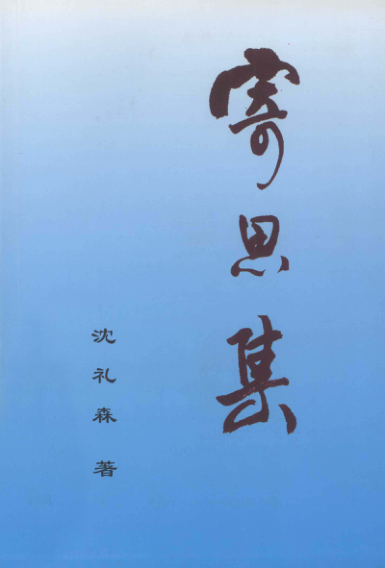 寄思集
沈礼森 著